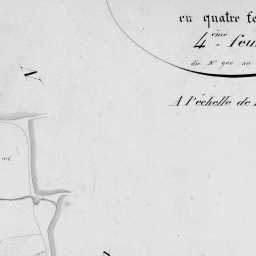 en quatre fe
4ème feu
du N° 900 au
A l'échelle de